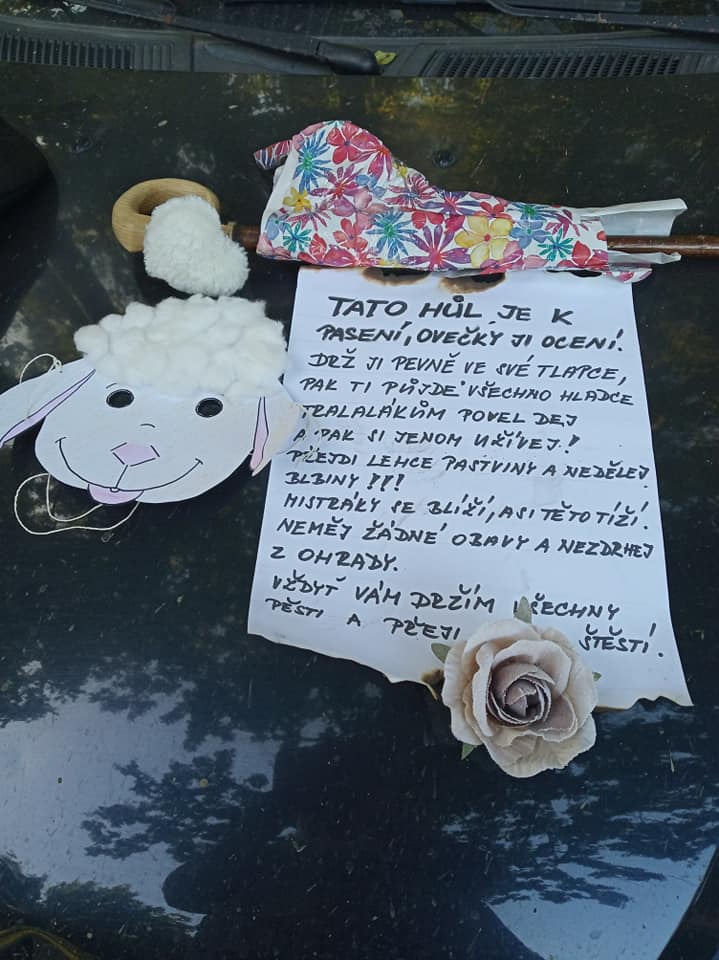 TATO HŮL JE K
PASENÍ, OVEČKY JI OCENÍ.
DRŽ JI PEVNĚ VE SVÉ TLAPCE,
PAK TI PŮJDE VŠECHNO HLADCE
TRALALÁKŮM POVEL DEJ
A PAK SI JENOM UŽÍVEJ!
PŘEJDI LEHCE PASTVINY A NEDĚLEJ
BLBINY !!!
MISTRÁKY SE BLÍŽÍ, ASI TĚ TO TÍŽÍ.
NEMĚJ ŽÁDNÉ OBAVY A NEZDRHEJ
Z OHRADY.
VŽDYŤ VÁM DRŽÍM VŠECHNY
PĚSTI A PŘEJI ŠTĚSTÍ.